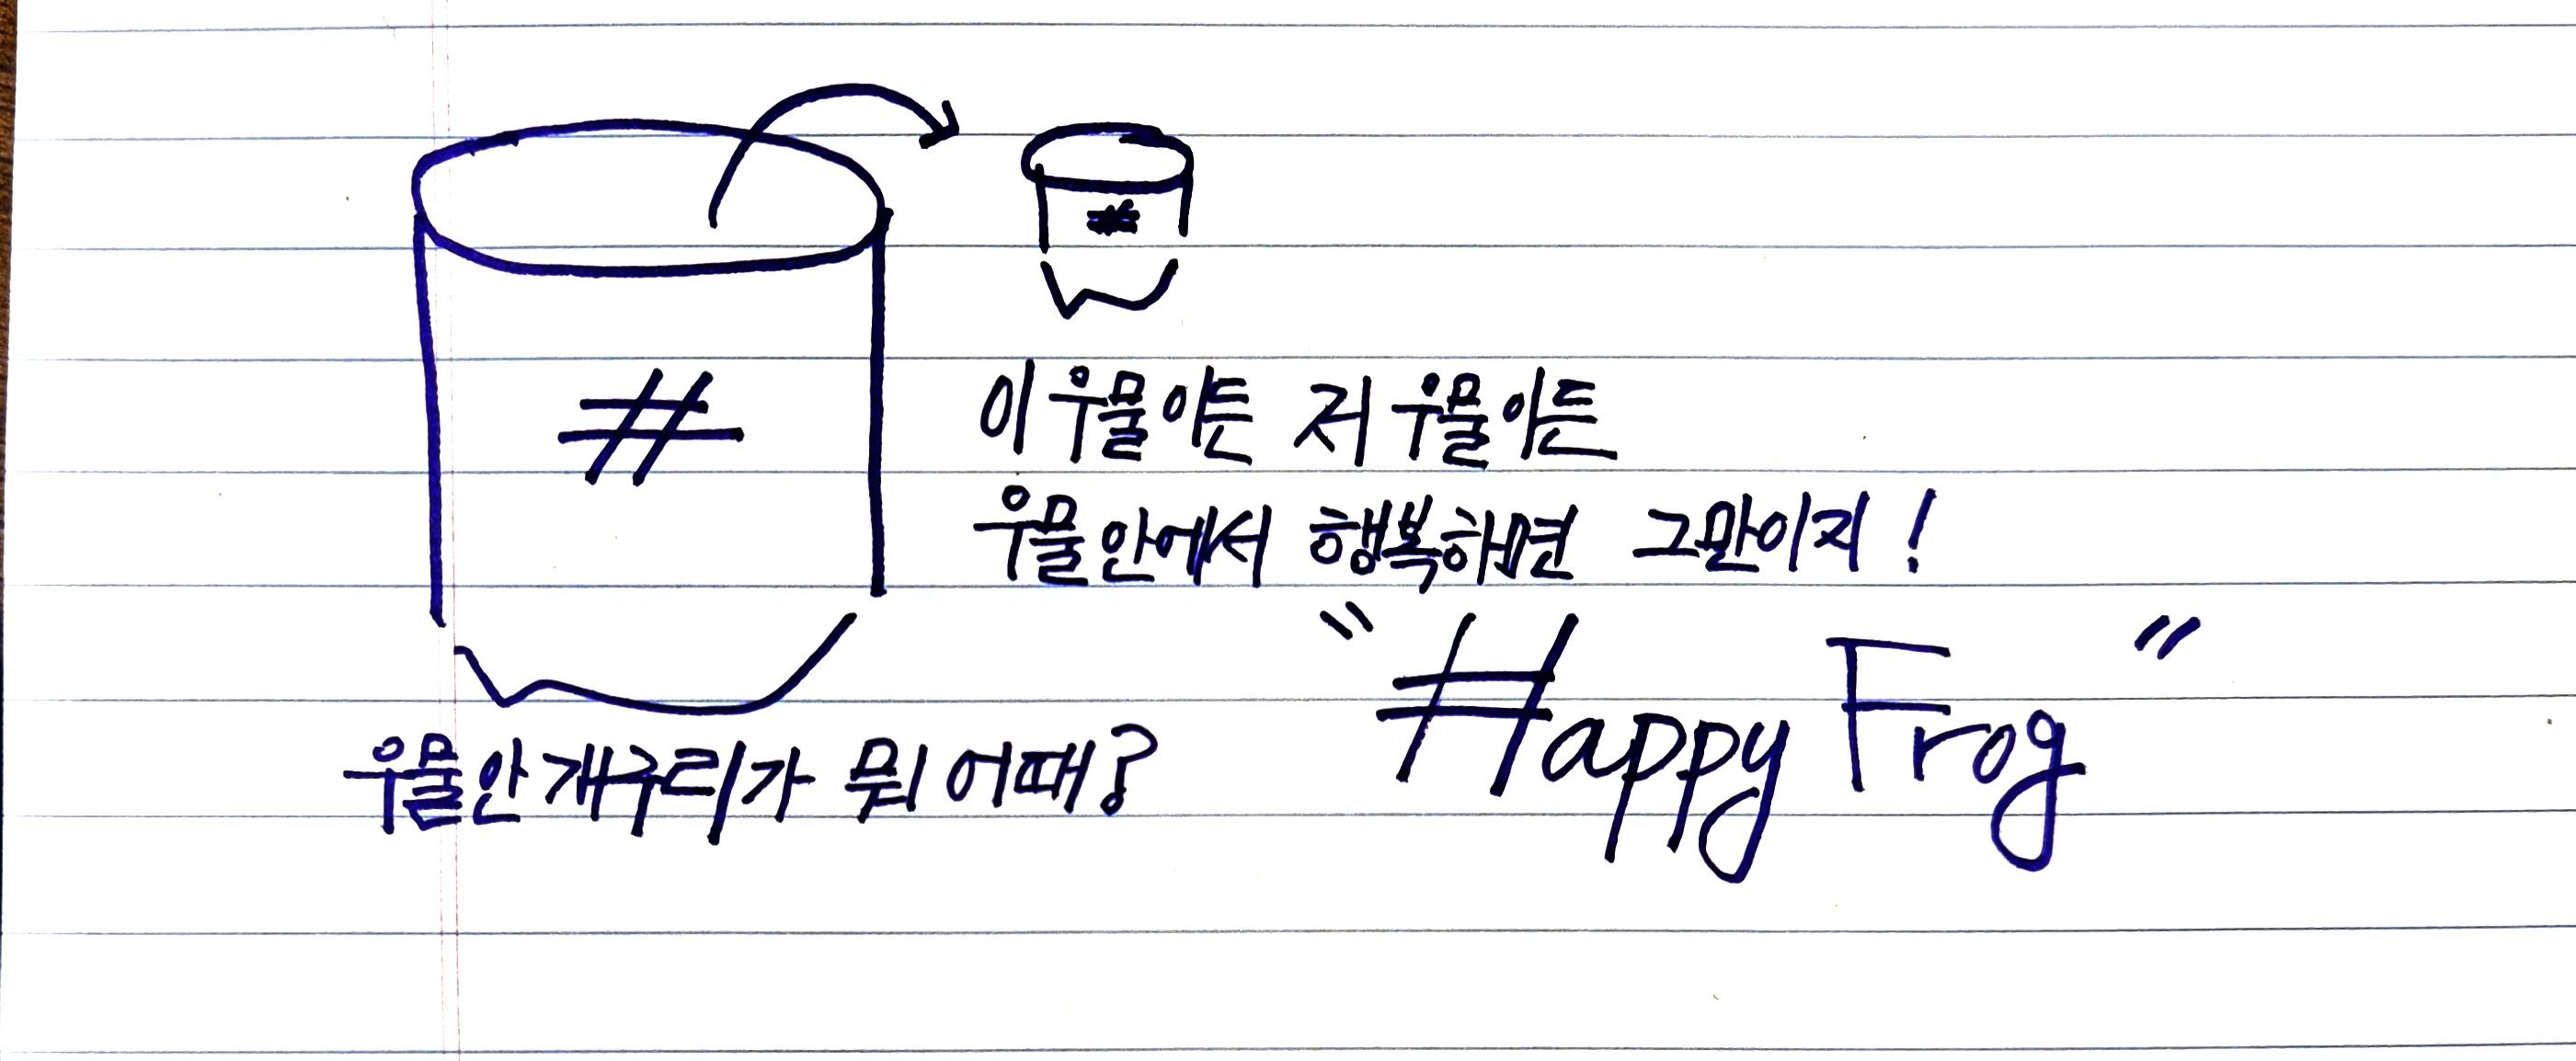 #
#
이 우물이든 저 우물이든
우물안에서 행복하면 그만이지!
"Happy Frog"
우물안 개구리가 뭐 어때?